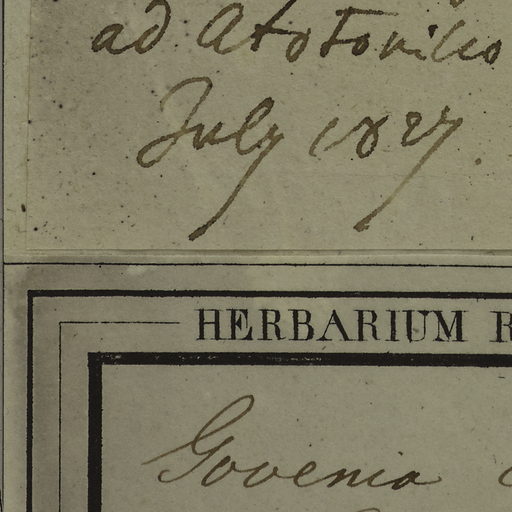 ad Atotonilco
July 1827.
HERBARIUM R
Govenia